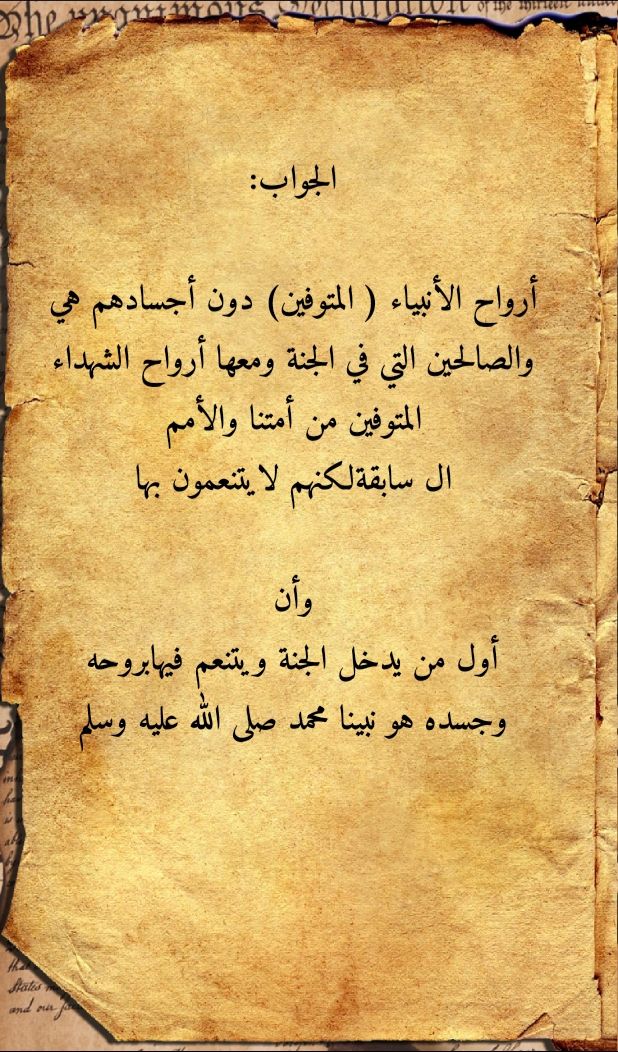 The anonimous Declaration of the thirteen
الجواب:
أرواح الأنبياء ( المتوفين) دون أجسادهم هي
والصالحين التي في الجنة ومعها أرواح الشهداء
المتوفين من أمتنا والأمم
ال سابقةلكنهم لايتنعمون بها
وأن
أول من يدخل الجنة ويتنعم فيهابروحه
وجسده هو نبينا محمد صلى الله عليه وسلم
States
and our